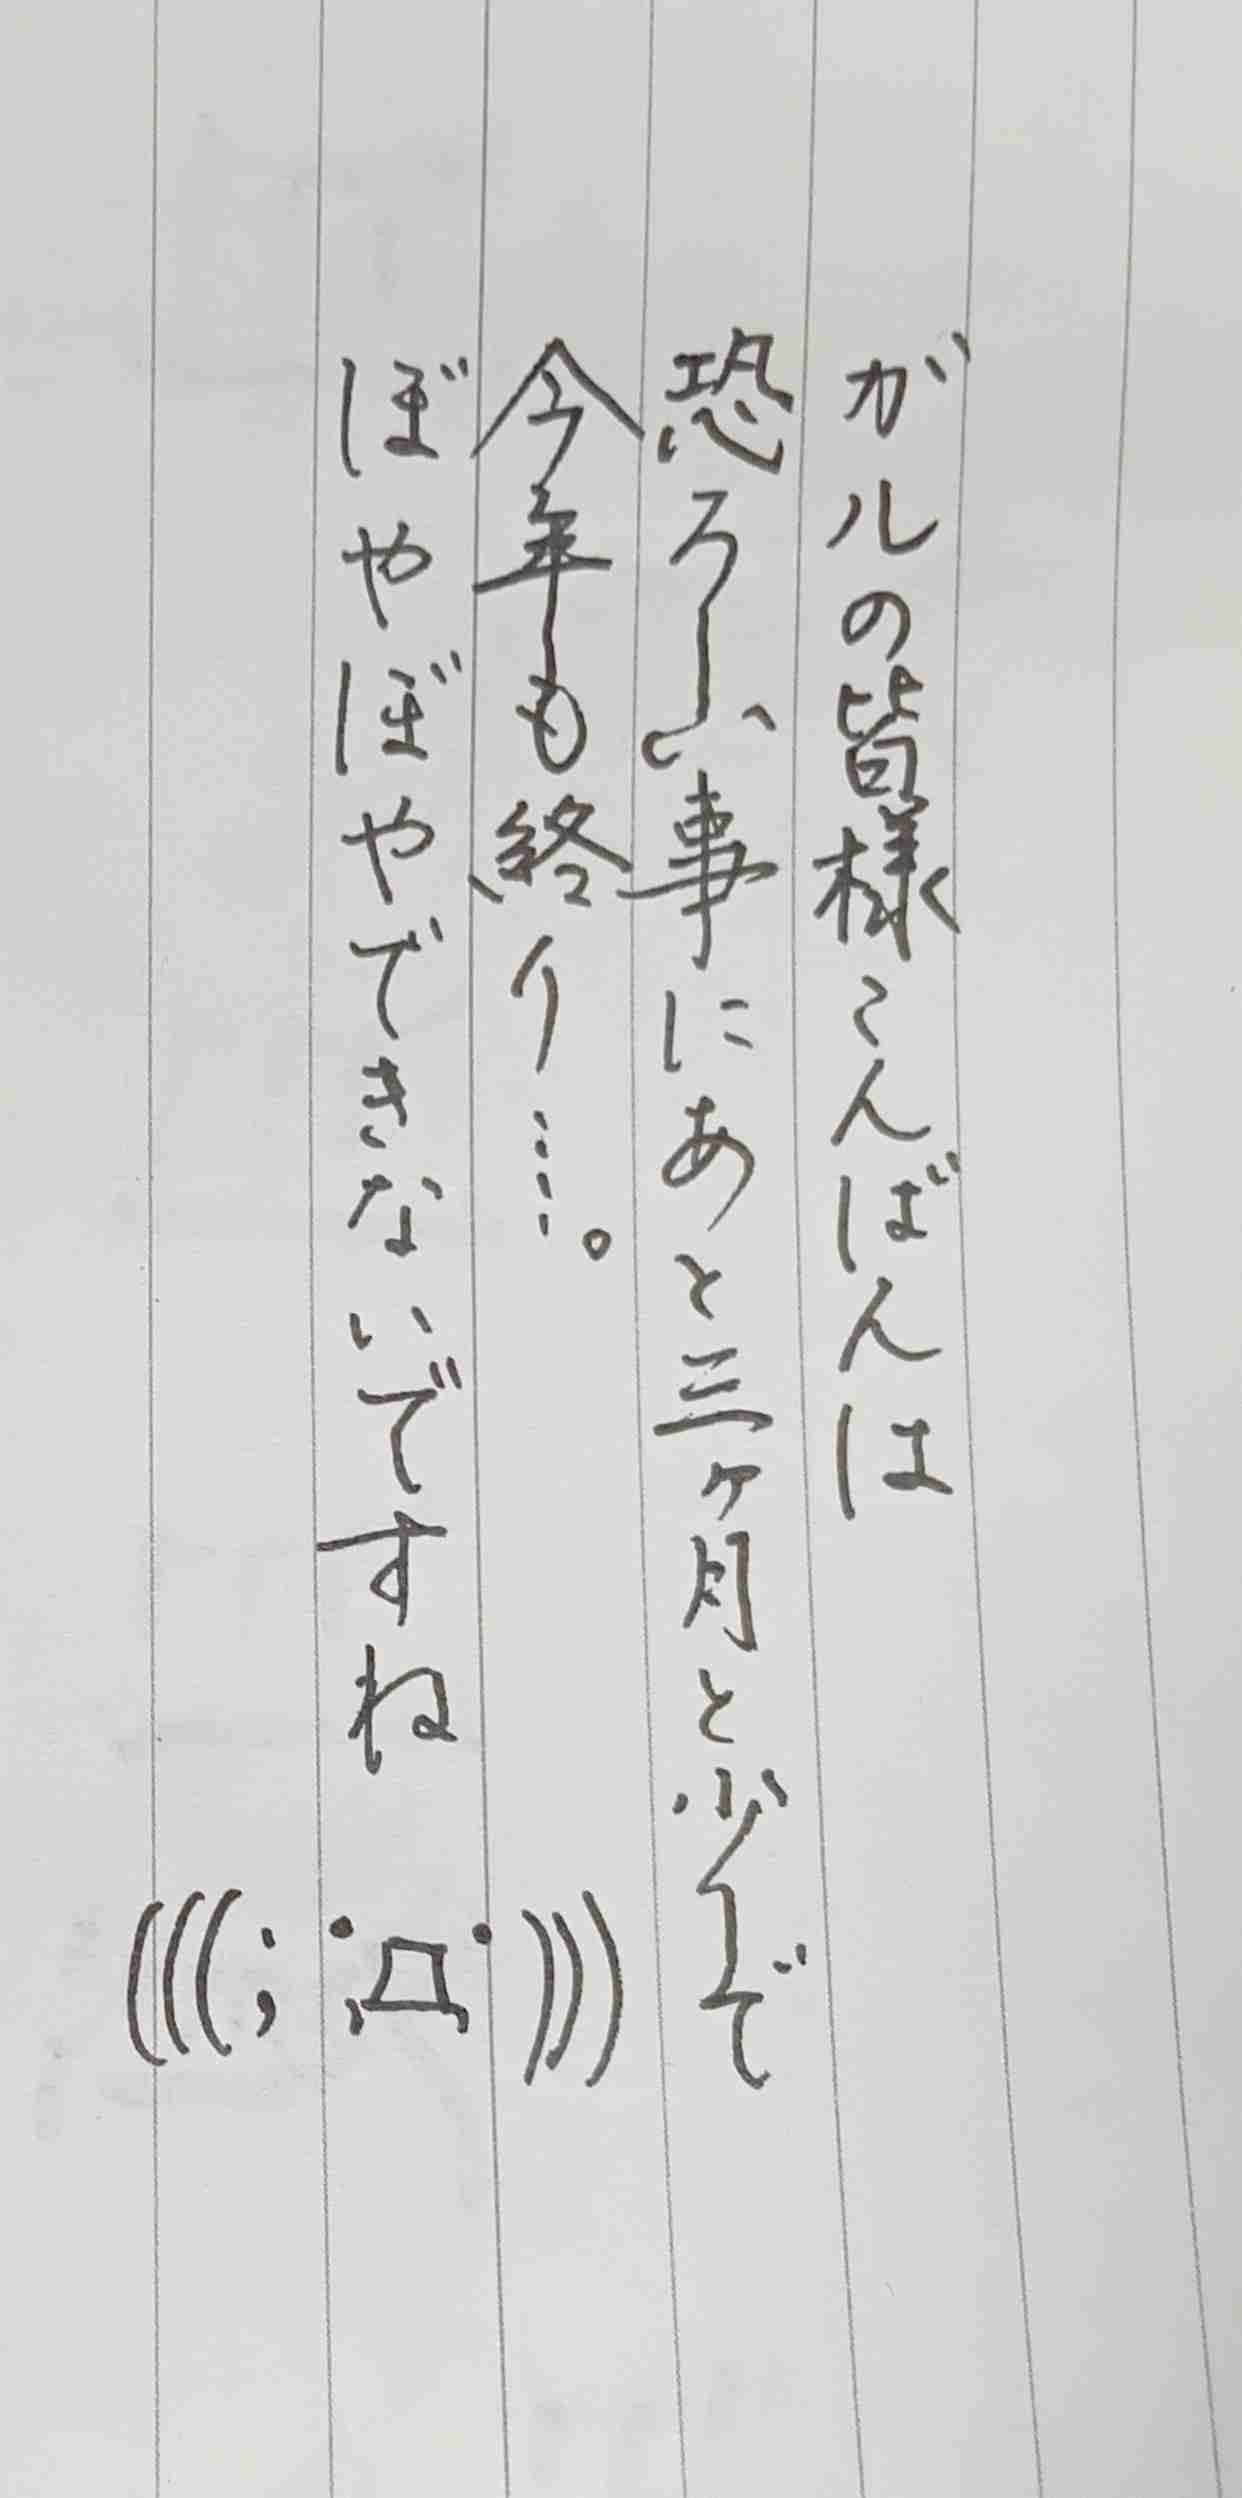 ガルの皆様こんばんは
恐ろしい事にあと三ヶ月と少しで
今年も終り…。
ぼやぼやできないですね
(((；ﾟДﾟ)))